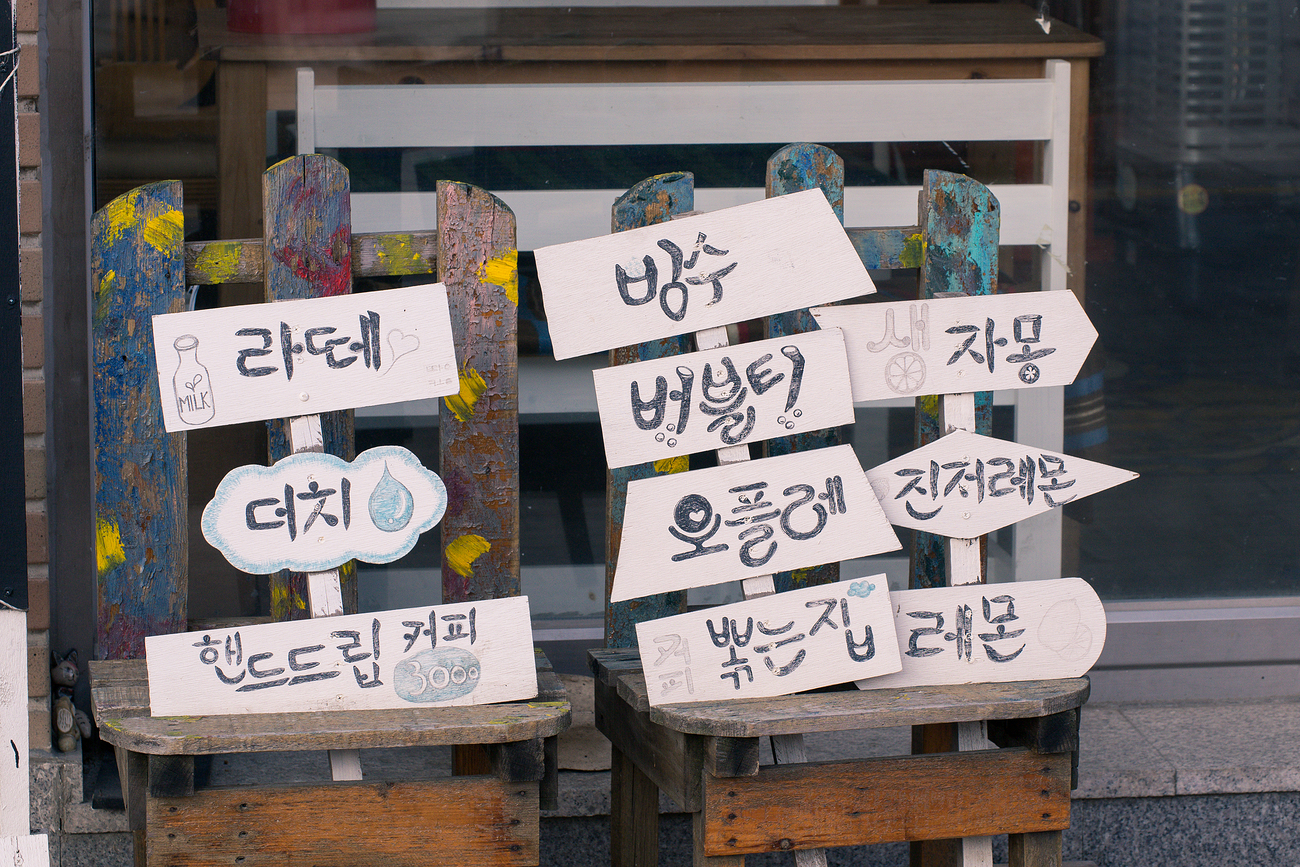 라떼
MILK
더치
핸드드립 커피
3000
빙수
버블티
오플레
커피 볶는집
생 자몽
진저레몬
레몬